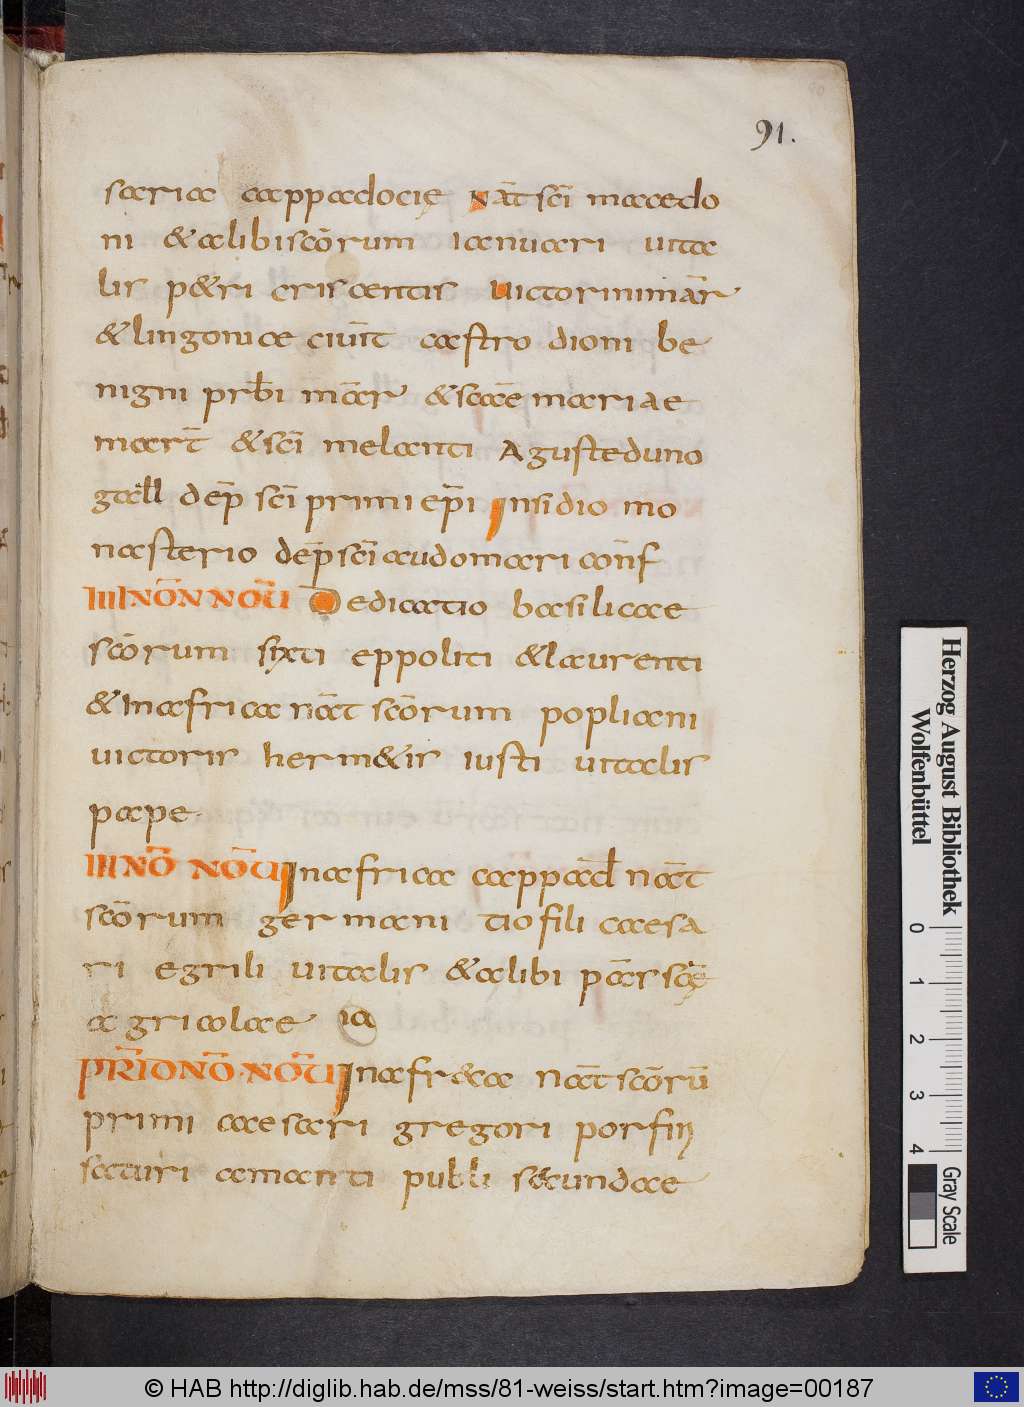 91.
saria cappadocię Nāt scī macedo
ni &alibi scōrum ianuari uita
lis p&ri criscentis uictorini mār
&lingonicae ciuīt castro dioni be
nigni prb̄i mār &scāe mariae
mart̄ &scī melanti Agusteduno
gall dep̄ scī primi ep̄i Insidio mo
nasterio dep̄ scī audomari con̄f
IIII NŌN NOŪ Dedicatio basilicae
scōrum syxti eppoliti &laurenti
&Inafrica nāt scōrum popliani
uictoris herm&is iusti uitalis
pape.
III NŌ NOŪ Inafrica cappad̄ nāt
scōrum germani tiofili caesa
ri egrili uitalis &alibi pāsr scāę
agricolae ia
PR̄IDNŌ NOŪ Inafrica nāt scōrū
primi caesari gregori porfirij
saturi amanti publi secundae
Herzog August Bibliothek
Wolfenbüttel
0 1 2 3 4
Gray Scale
© HAB http://diglib.hab.de/mss/81-weiss/start.htm?image=00187